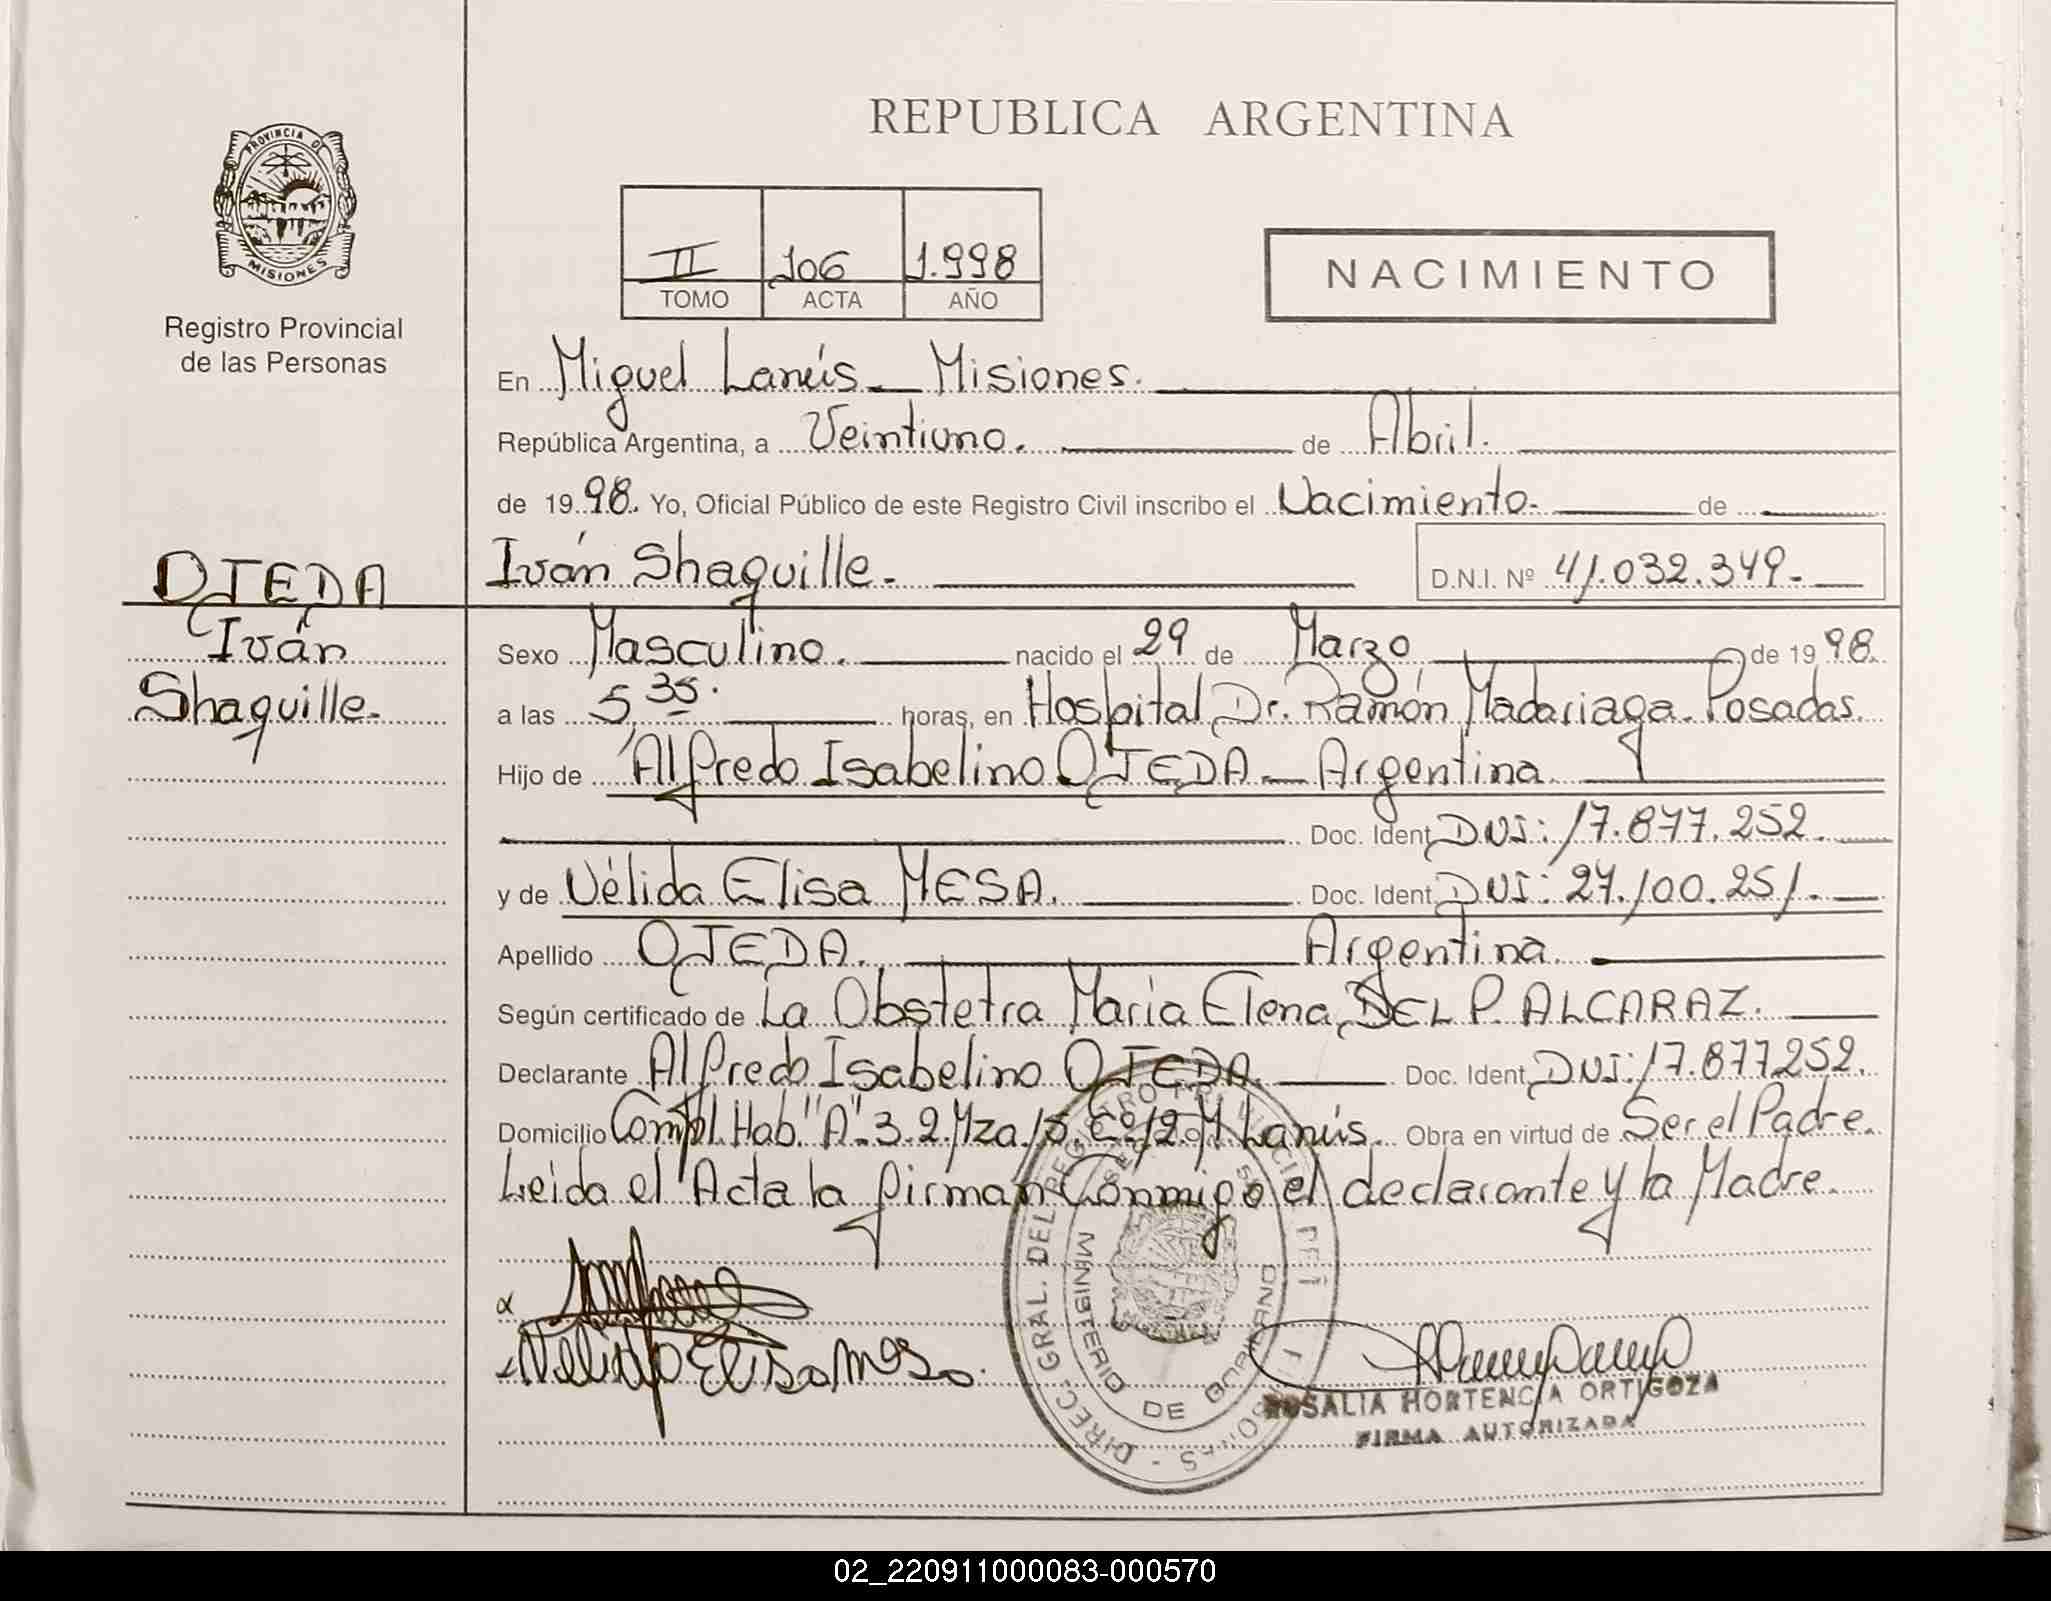 PROVINCIA DE
MISIONES
Registro Provincial
de las Personas
OJEDA
Iván
Shaquille.
REPUBLICA ARGENTINA
II 106 1.998
TOMO ACTA AÑO
NACIMIENTO
En Miguel Lanús - Misiones.
República Argentina, a Veintiuno. de Abril.
de 1998. Yo, Oficial Público de este Registro Civil inscribo el Nacimiento. de
Iván Shaquille. D.N.I. Nº 41.032.349.
Sexo Masculino. nacido el 29 de Marzo de 1998.
a las 5,35. horas, en Hospital Dr. Ramón Madariaga. Posadas.
Hijo de Alfredo Isabelino OJEDA - Argentina.
Doc. Ident. DNI: 17.877.252.
y de Nélida Elisa MESA. Doc. Ident. DNI: 27.100.251.
Apellido OJEDA. Argentina.
Según certificado de La Obstetra María Elena DEL P. ALCARAZ.
Declarante Alfredo Isabelino OJEDA. Doc. Ident. DNI: 17.877252.
Domicilio Compl. Hab. "A" 3.2 Mza. 15. Cº 12 M Lanús. Obra en virtud de Ser el Padre.
Leida el Acta la firman Conmigo el declarante y la Madre.
Nelida Elisa Mesa.
DIREC. GRAL. DEL REGISTRO PROVINCIAL DE
MINISTERIO DE GOBIERNO
ROSALIA HORTENCIA ORTIGOZA
FIRMA AUTORIZADA
02_220911000083-000570